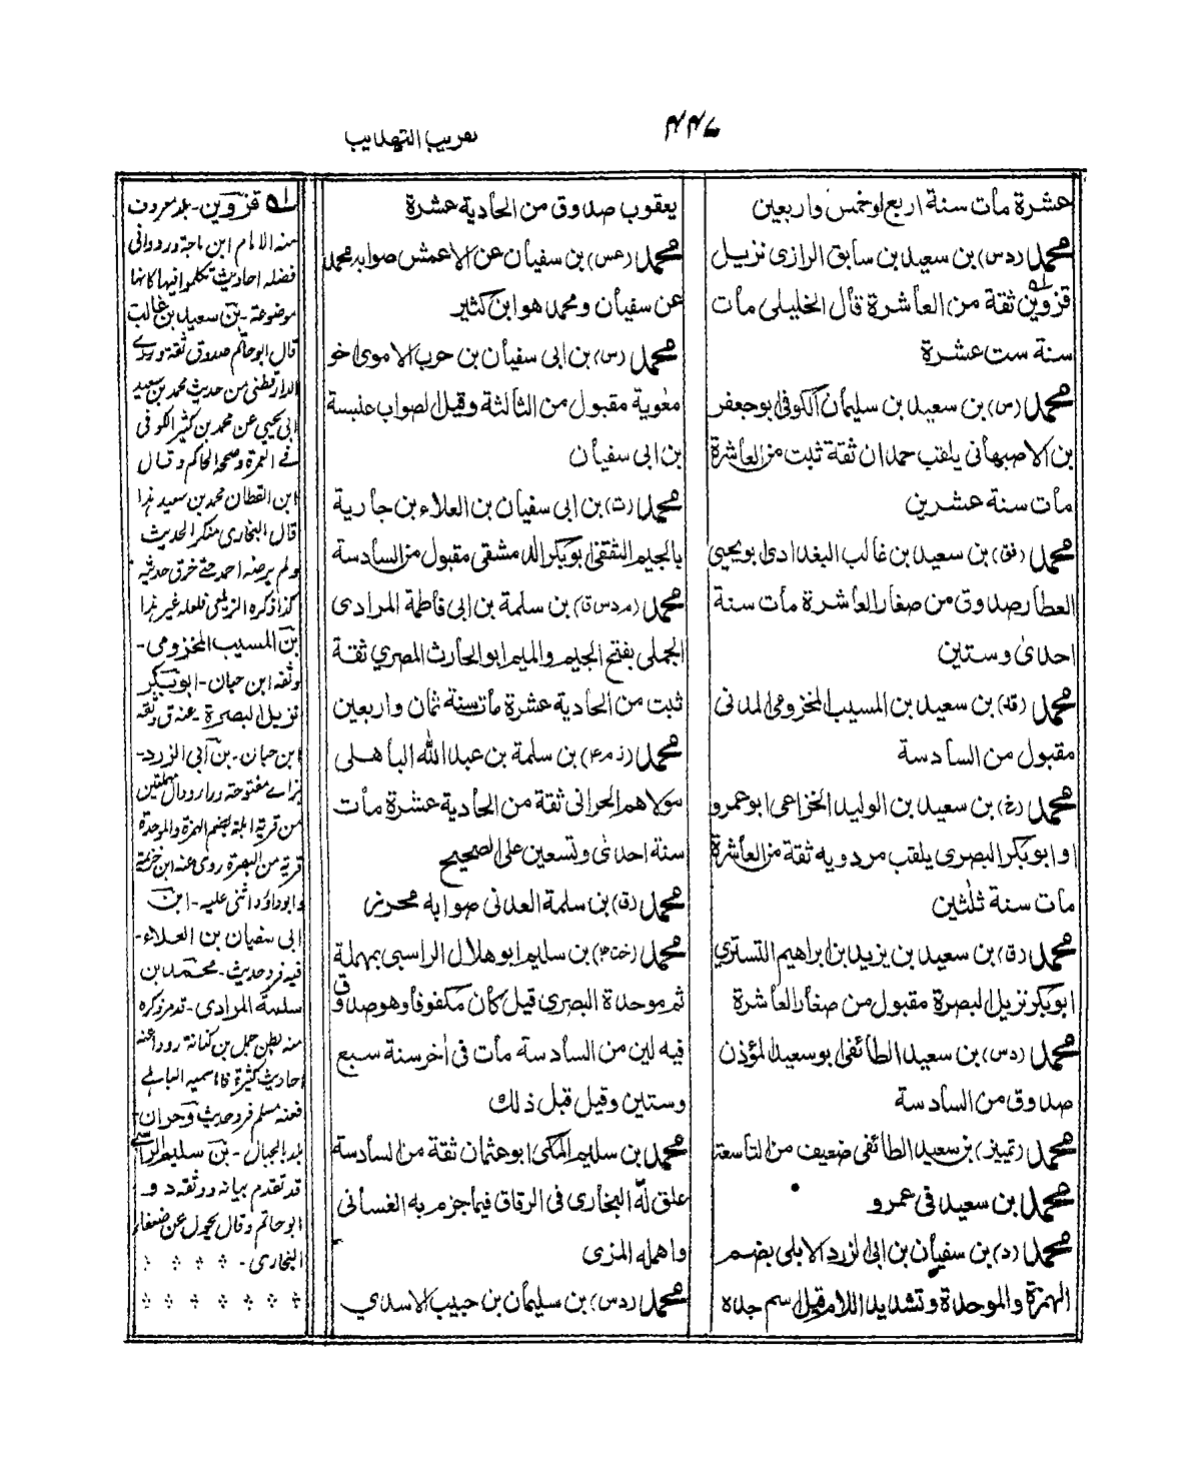 ۴۴۷
تقريب التهذيب
عشرة مات سنة اربع او خمس واربعين
محمد (د س) بن سعيد بن سابق الرازى نزيل
قزوين ثقة من العاشرة قال الخليلى مات
سنة ست عشرة
محمد (س) بن سعيد بن سليمان الكوفى ابو جعفر
بن الاصبهانى يلقب حمدان ثقة ثبت من العاشرة
مات سنة عشرين
محمد (فق) بن سعيد بن غالب البغدادى ابو يحيى
العطار صدوق من صغار العاشرة مات سنة
احدى وستين
محمد (قد) بن سعيد بن المسيب المخزومى المدنى
مقبول من السادسة
محمد (خ) بن سعيد بن الوليد الخزاعى ابو عمرو
او ابو بكر البصرى يلقب مردويه ثقة من العاشرة
مات سنة ثلثين
محمد (ق) بن سعيد بن يزيد بن ابراهيم التسترى
ابو بكر نزيل البصرة مقبول من صغار العاشرة
محمد (د س) بن سعيد الطائفى ابو سعيد المؤذن
صدوق من السادسة
محمد (تمييز) بن سعيد الطائفى ضعيف من التاسعة
محمد بن سعيد فى عمرو
محمد (د) بن سفيان بن ابى الزرد الابلى بضم
الهمزة والموحدة وتشديد اللام قيل اسم جده
يعقوب صدوق من الحادية عشرة
محمد (عس) بن سفيان عن الاعمش صوابه محمد
عن سفيان ومحمد هو ابن كثير
محمد (س) بن ابى سفيان بن حرب الاموى اخو
معوية مقبول من الثالثة وقيل الصواب عنبسة
بن ابى سفيان
محمد (ت) بن ابى سفيان بن العلاء بن جارية
بالجيم الثقفى ابو بكر الدمشقى مقبول من السادسة
محمد (م د س ق) بن سلمة بن ابى فاطمة المرادى
الجملى بفتح الجيم والميم ابو الحارث المصرى ثقة
ثبت من الحادية عشرة مات سنة ثمان واربعين
محمد (ز م ۴) بن سلمة بن عبد الله الباهلى
مولاهم الحرانى ثقة من الحادية عشرة مات
سنة احدى وتسعين على الصحيح
محمد (ق) بن سلمة العدنى صوابه محرز
محمد (خت ۴) بن سليم ابو هلال الراسبى بمهملة
ثم موحدة البصرى قيل كان مكفوفا وهو صدوق
فيه لين من السادسة مات فى اخر سنة سبع
وستين وقيل قبل ذلك
محمد بن سليم المكى ابو عثمان ثقة من السادسة
علق له البخارى فى الرقاق فيما جزم به الغسانى
واهمله المزى
محمد (د س) بن سليمان بن حبيب الاسدى
له قزوين - بلد معروف
منه الامام ابن ماجة وروو انى
فضله احاديث تكلموا فيها كانها
موضوعة - بن سعيد بن غالب
قال ابو حاتم صدوق ثقة وروى
الدارقطنى من حديث محمد بن سعيد
ابى يحيى عن محمد بن كثير الكوفى
فى العمرة وصححه الحاكم وقال
ابن القطان محمد بن سعيد هذا
قال البخارى منكر الحديث
ولم يرضه احمد حتى خرق حديثه
كذا ذكره الزيلعى فلعله غير هذا
بن المسيب المخزومى -
وثقه ابن حبان - ابو بكر
نزيل البصرة عنه ق وثقه
ابن حبان - بن ابى الزرد -
بزاى مفتوحة وراء ودال مهملتين
من قرية ابلة بضم الهمزة والموحدة
قرية من البصرة روى عنه ابن خزيمة
وابو داؤد اثنى عليه - ابن
ابى سفيان بن العلاء -
فيه فرد حديث - محمد بن
سلمة المرادى - قد مر ذكره
منه بطن جمل بن كنانة رووا عنه
احاديث كثيرة فاما سميه الباهلى
فعنه مسلم فرد حديث وحران
بلد بالجبال - بن سليم الراسبى
قد تقدم بيانه ووثقه د و
ابو حاتم وقال يحول عن ضعفاء
البخارى -